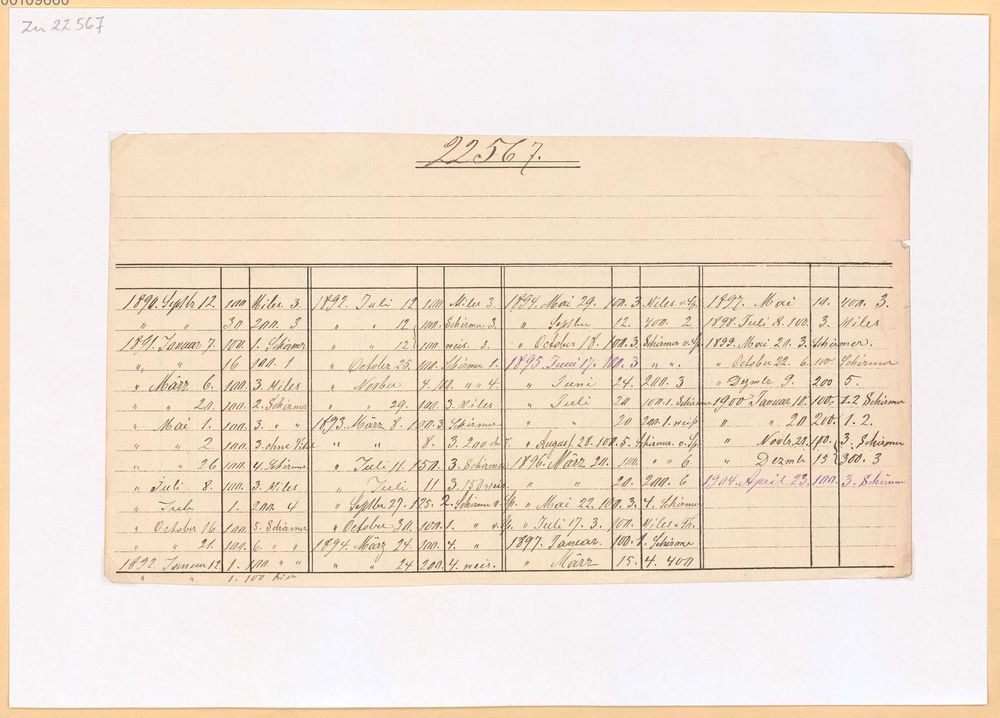 00109660
Zu 22567
22567.
1890. Septbr 12. 100 Miles. 3.
" " 30. 200. 3
1891. Januar 7. 100. 1. Schirmer
" " 16 100. 1
" März 6. 100. 3. Miles
" " 20. 100. 2. Schirmer
" Mai 1. 100. 3. " "
" " 2 100. 3. ohne
" " 26 100. 4. Schirmer
" Juli 8. 100. 3. Miles
" Juli 1. 200. 4
" October 16. 100. 5. Schirmer
" " 21. 100. 6. " "
1892. Januar 12 1. 100. " "
" " 1. 100 hier
1892. Juli 12 100. Miles 3
" " 12 100. Schirmer. 3.
" " 12 100. weis. 3.
" October 25. 100. Schirmer 1.
" Novbr 4. 100. " " 4
" " 29. 100. 3. Miles
1893. März 8. 100. 3. Schirmer
" " 8. 3. 200
" Juli 11. 150. 3. Schirmer
" Juli 11 3. 150 weis
" Septbr 27. 125. 2. Schirmer
" October 30. 100. 1. "
1894. März 24. 100. 4. "
" " 24 200. 4. weis.
1894. Mai 29. 100. 3 Miles.
" Septbr 12. 400. 2
" October 18. 100. 3. Schirmer
1895. Juni 17. 100. 3 " ".
" Juni 24. 200. 3
" Juli 20 100. 1. Schirmer
" " 20 200. 1. weis
" August. 28. 100. 5. Schirmer
1896. März 20. 100. " " 6.
" " 20. 200. 6
" Mai 22. 100. 3. 4. Schirmer
" Juli 17. 3. 100. Miles
1897. Januar. 100. 1. Schirmer
" März 15. 4. 400
1897. Mai 10. 400. 3.
1898. Juli 8. 100. 3. Miles
1899. Mai 20. 3. Schirmer.
" October 22. 6. 100. Schirmer
" Dezmbr 9. 200 5.
1900 Januar 10. 100. 1. 2 Schirmer
" " 20 200. 1. 2.
" Novbr. 28. 100. 3. Schirmer
" Dezmbr 15 300. 3
1904. April 23. 100. 3. Schirmer